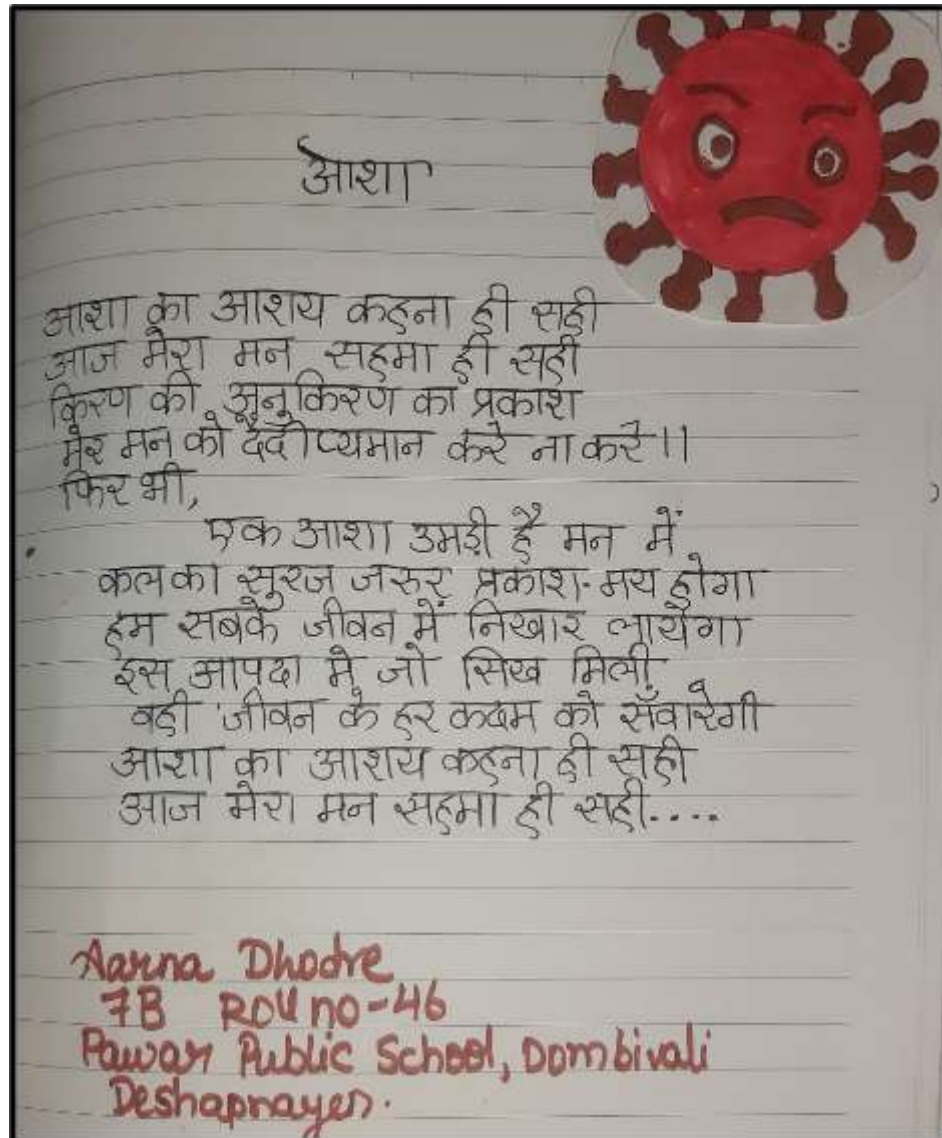 आशा
आशा का आशय कहना ही सही
आज मेरा मन सहमा ही सही
किरण की अनुकिरण का प्रकाश
मेरे मन को दैदीप्यमान करे ना करे।।
फिर भी,
एक आशा उमड़ी है मन में
कल का सूरज जरूर प्रकाश-मय होगा
हम सबके जीवन में निखार लायेगा
इस आपदा मे जो सिख मिली
वही जीवन के हर कदम को सँवारेगी
आशा का आशय कहना ही सही
आज मेरा मन सहमा ही सही....
Aarna Dhodre
7B Roll no-46
Pawar Public School, Dombivali